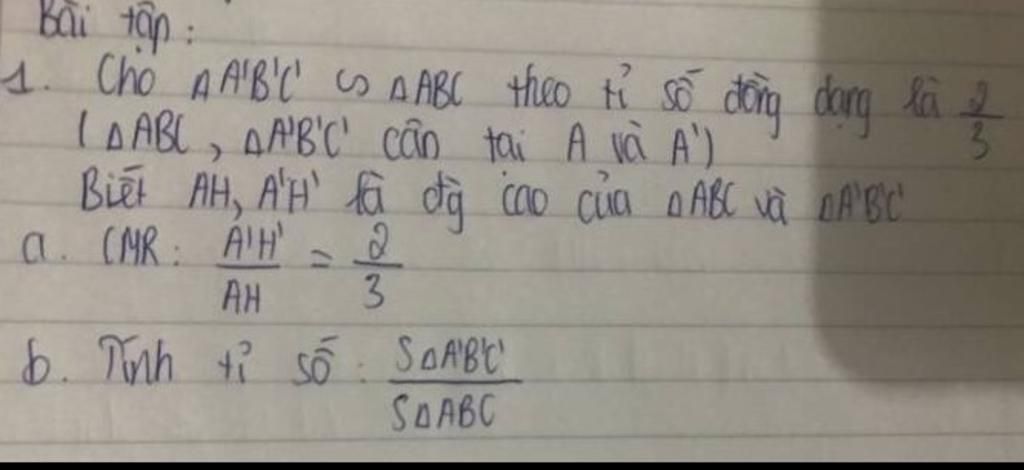 Bài tập:
1. Cho ΔA'B'C' ∽ ΔABC theo tỉ số đồng dạng là 2/3
(ΔABC, ΔA'B'C' cân tại A và A')
Biết AH, A'H' là đg cao của ΔABC và ΔA'B'C'
a. CMR: A'H'/AH = 2/3
b. Tính tỉ số: SΔA'B'C'/SΔABC